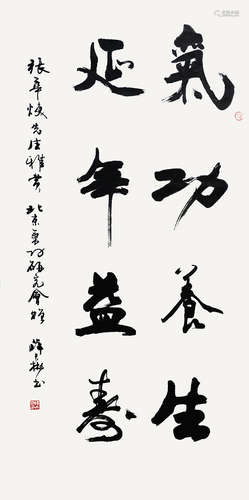 氣功養生
延年益壽
張華炆先生雅賞 北京氣功研究會贈